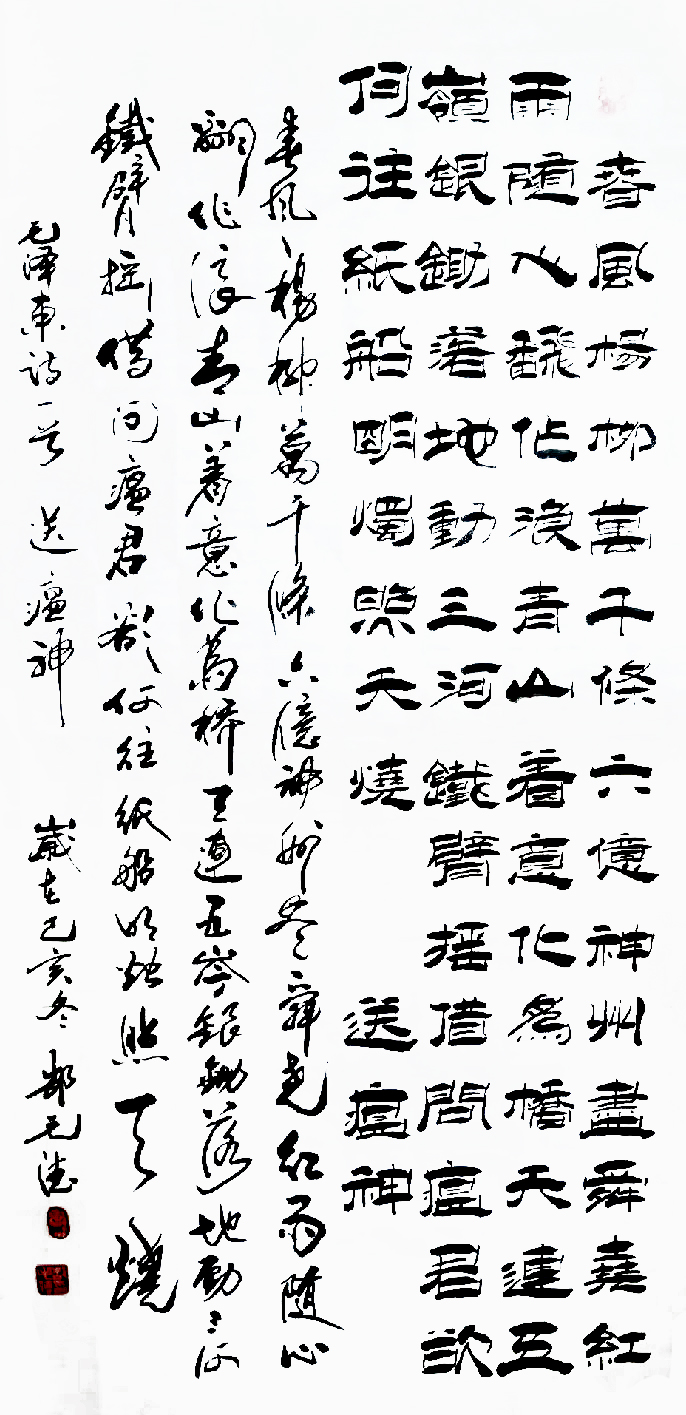 春風楊柳萬千條六億神州盡舜堯紅
雨随心飜作浪青山着意化為橋天連五
嶺銀鋤落地動三河鐵臂摇借問瘟君欲
何往紙船明燭照天燒 送瘟神
春風楊柳萬千條六億神州盡舜堯紅雨随心
翻作浪青山著意化為橋天連五岑銀鋤落地動三河
鐵臂摇借问瘟君欲何往紙船明燭照天燒
毛泽東诗一首 送瘟神 歲在己亥冬